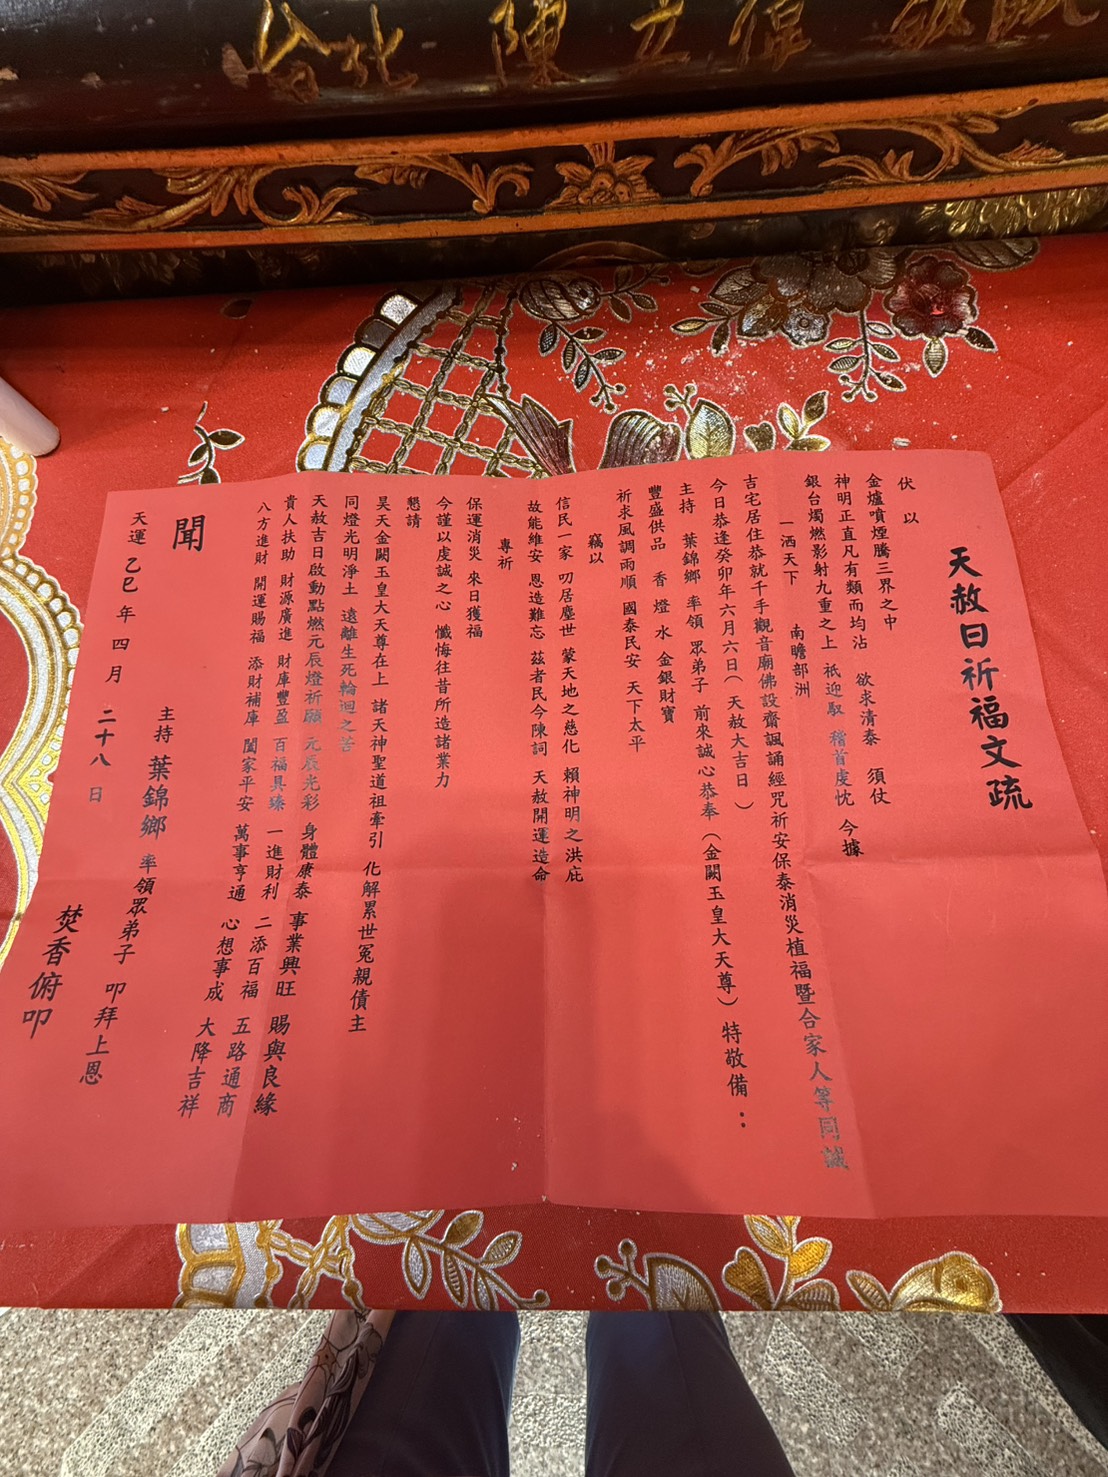 天赦日祈福文疏
伏以
金爐噴煙騰三界之中
神明正直凡有類而均沾 欲求清泰 須仗
銀台燭燃影射九重之上 祇迎馭 稽首虔忱 今據
一洒天下 南瞻部洲
吉宅居住恭就千手觀音廟佛設齋諷誦經咒祈安保泰消災植福暨合家人等同誠
今日恭逢癸卯年六月六日(天赦大吉日)
主持 葉錦鄉 率領 眾弟子 前來誠心恭奉(金闕玉皇大天尊)特敬備:
豐盛供品 香 燈 水 金銀財寶
祈求風調雨順 國泰民安 天下太平
竊以
信民一家 叨居塵世 蒙天地之慈化 賴神明之洪庇
故能維安 恩造難忘 茲者民今陳詞 天赦開運造命
專祈
保運消災 來日獲福
今謹以虔誠之心 懺悔往昔所造諸業力
懇請
昊天金闕玉皇大天尊在上 諸天神聖道祖牽引 化解累世冤親債主
同燈光明淨土 遠離生死輪迴之苦
天赦吉日啟動點燃元辰燈祈願 元辰光彩 身體康泰 事業興旺 賜與良緣
貴人扶助 財源廣進 財庫豐盈 百福具臻 一進財利 二添百福 五路通商
八方進財 開運賜福 添財補庫 闔家平安 萬事亨通 心想事成 大降吉祥
聞
主持 葉錦鄉 率領眾弟子 叩拜上恩
天運 乙巳 年 四 月 二十八 日
焚香俯叩
台北 陳立偉